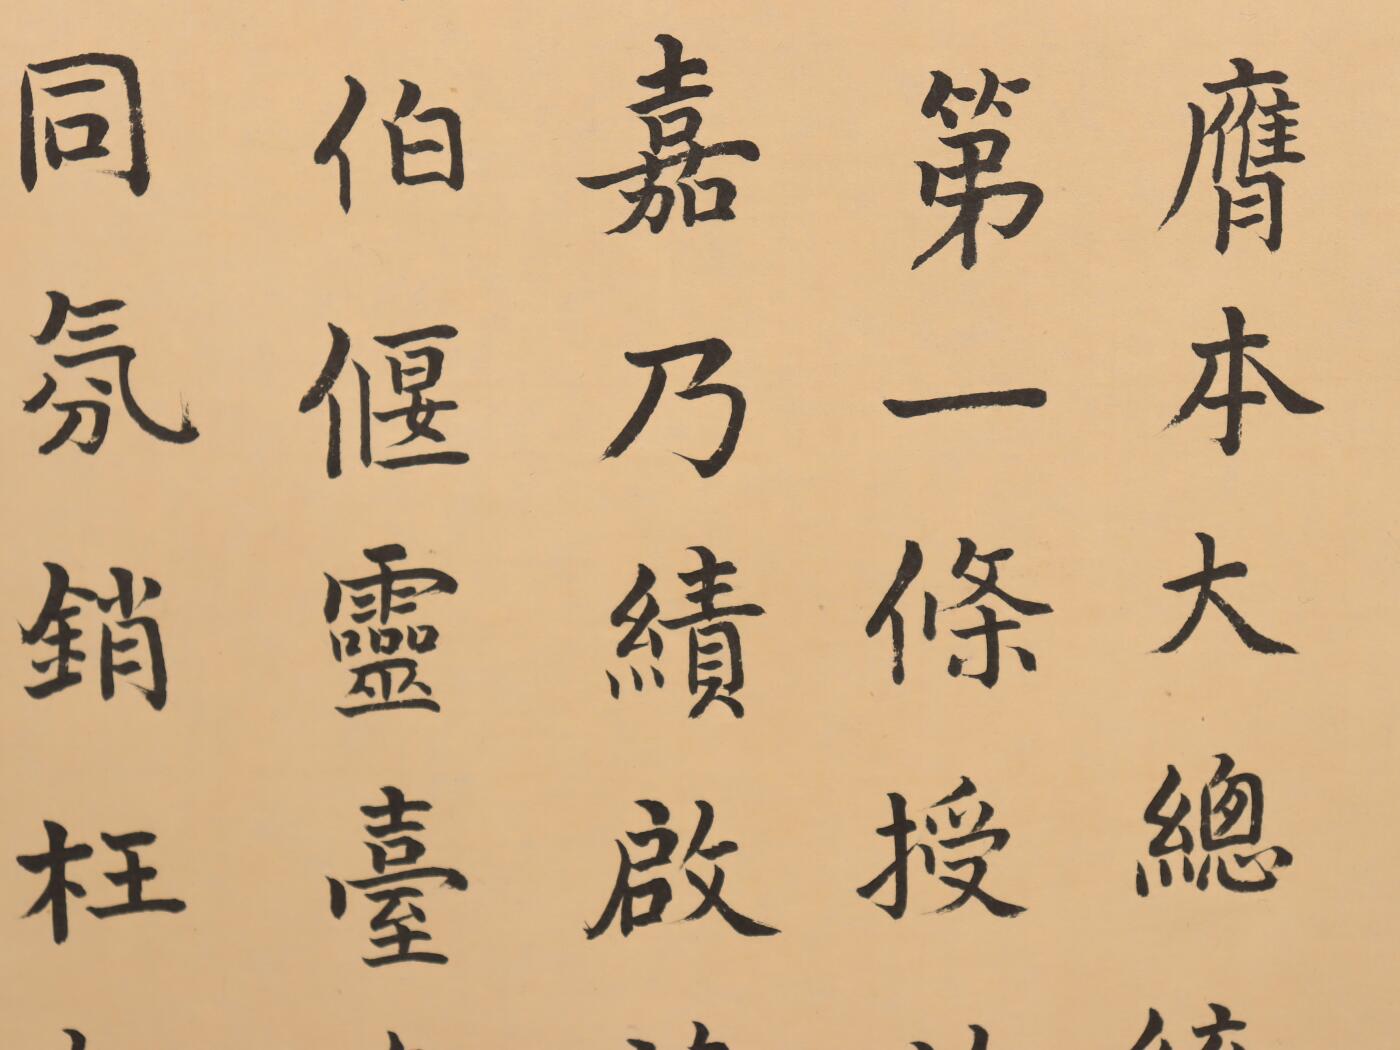 膺本大總統
第一條授
嘉乃績啟
伯偃靈臺
同氛銷枉